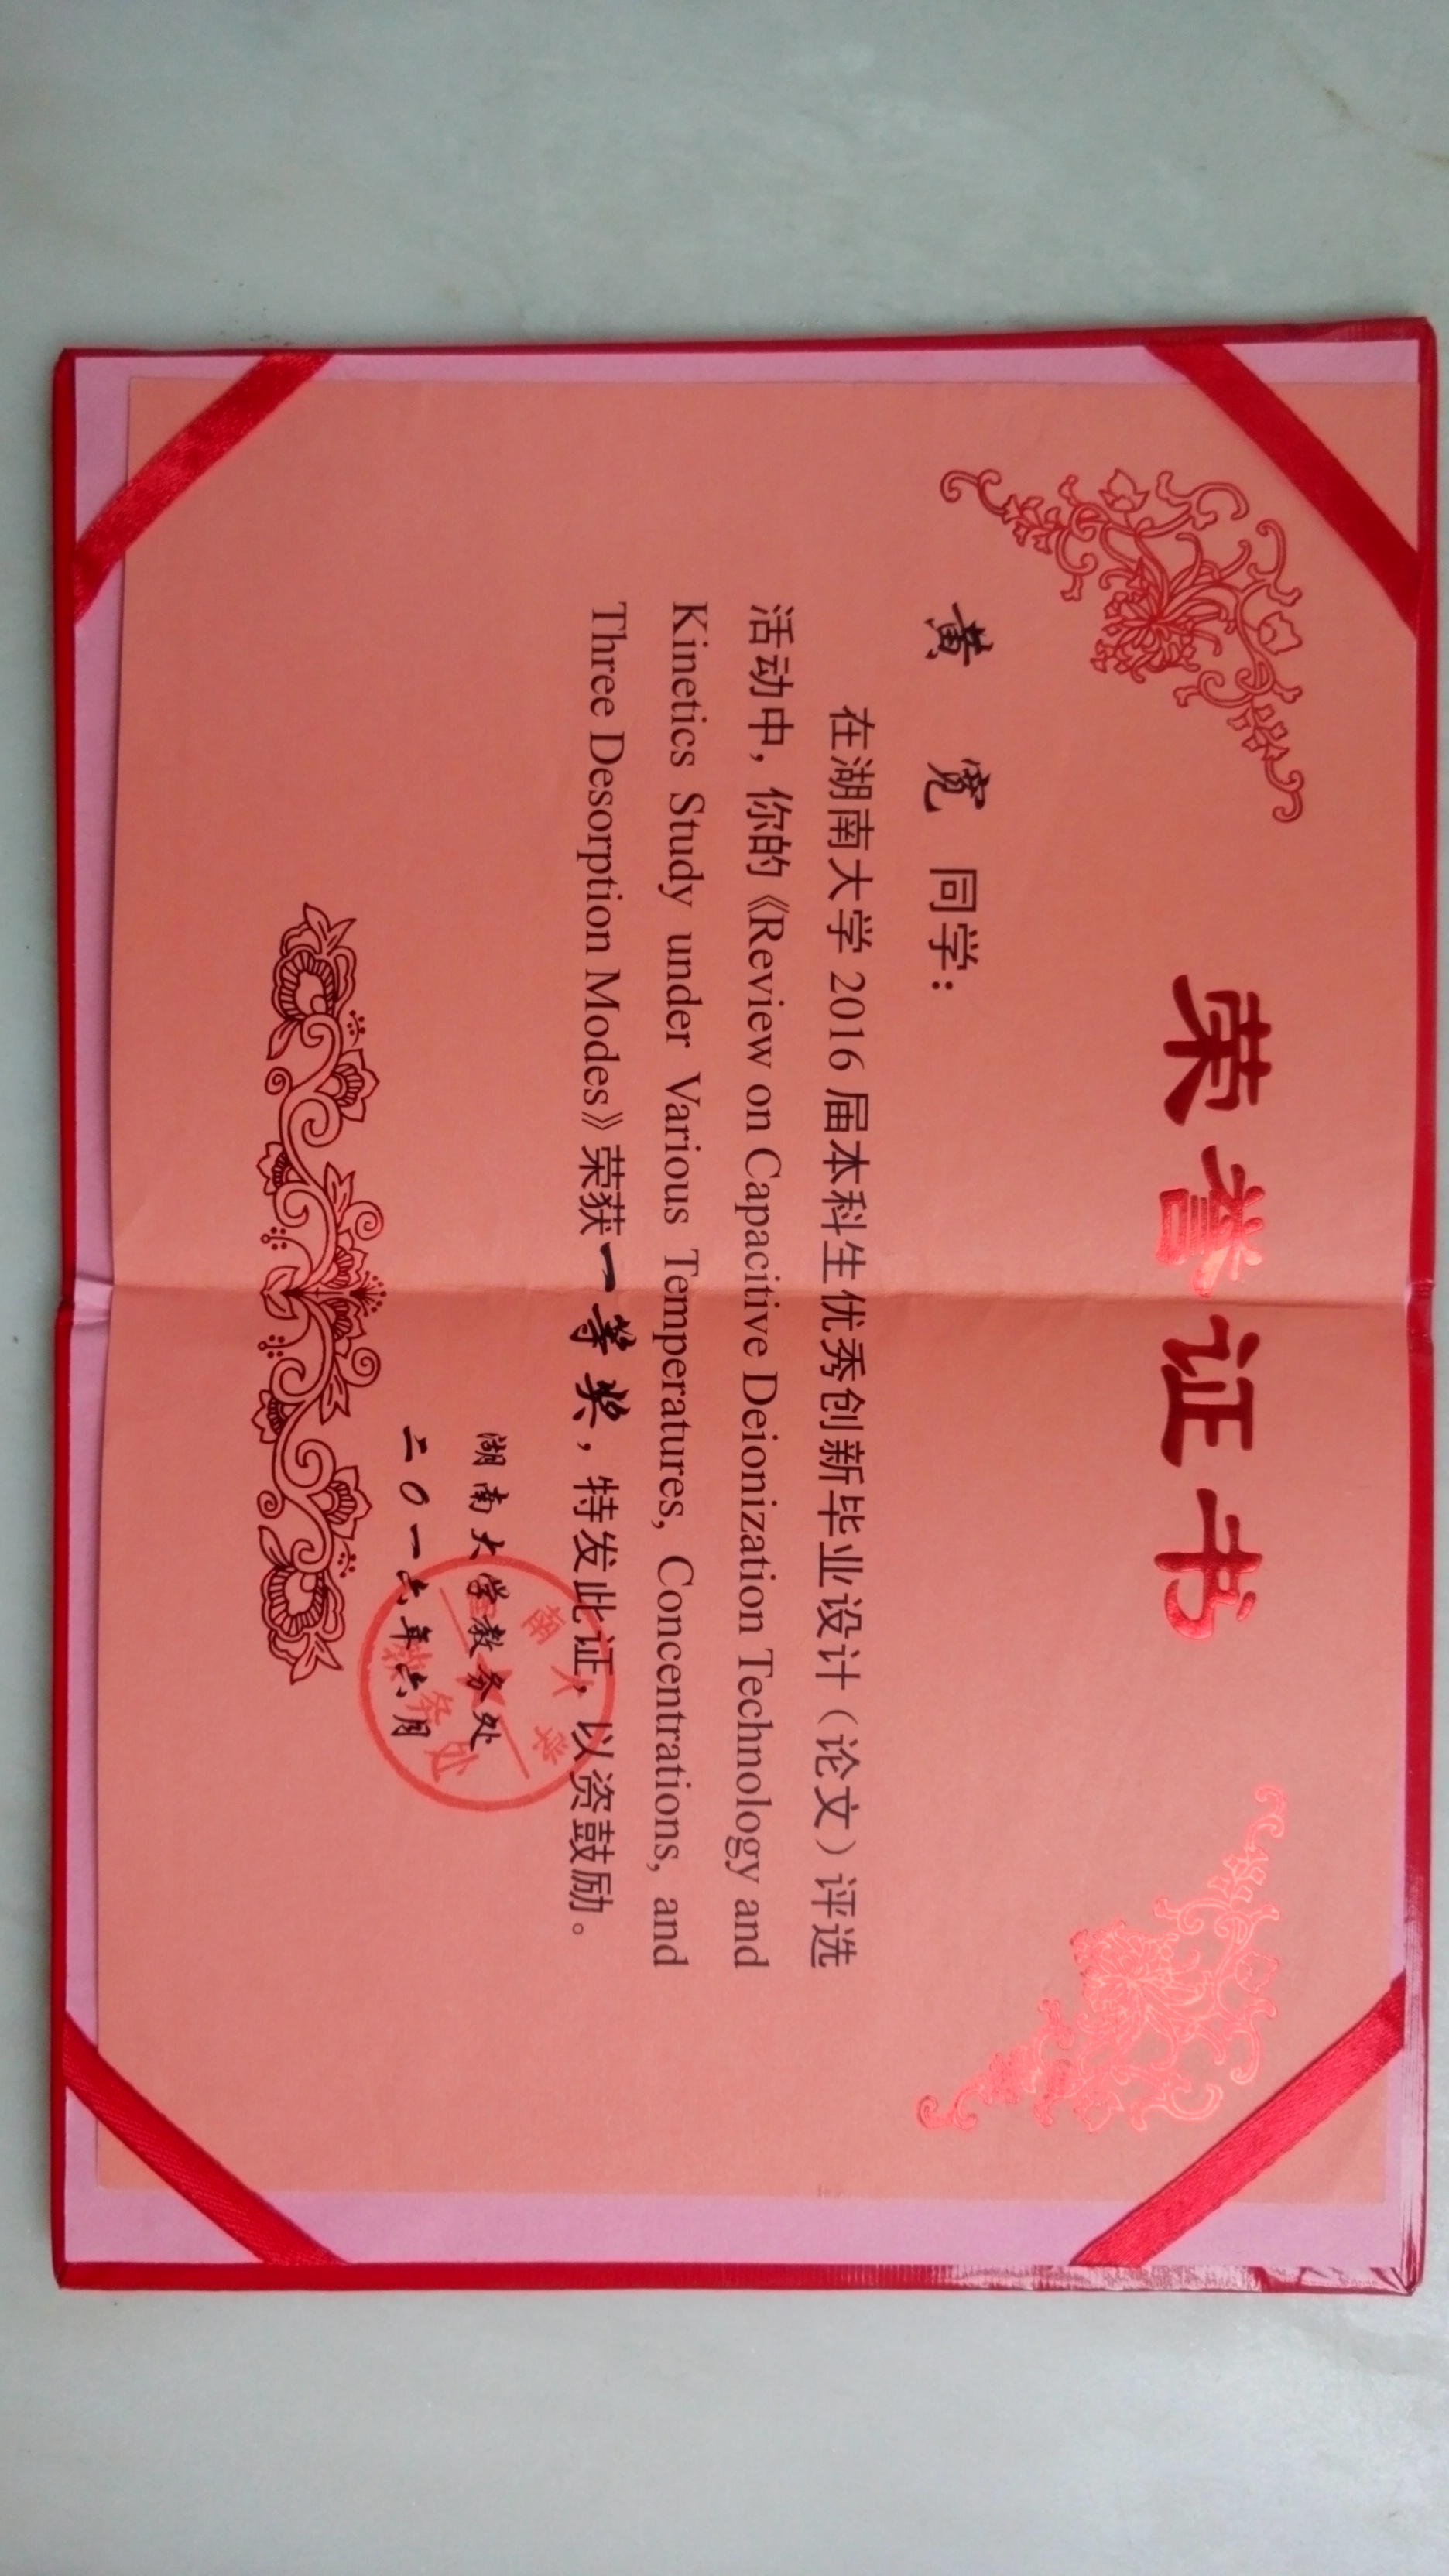 荣誉证书
黄宽同学：
在湖南大学 2016 届本科生优秀创新毕业设计（论文）评选
活动中，你的《Review on Capacitive Deionization Technology and
Kinetics Study under Various Temperatures, Concentrations, and
Three Desorption Modes》荣获一等奖，特发此证，以资鼓励。
湖南大学教务处
二〇一六年六月
南大学
教务处